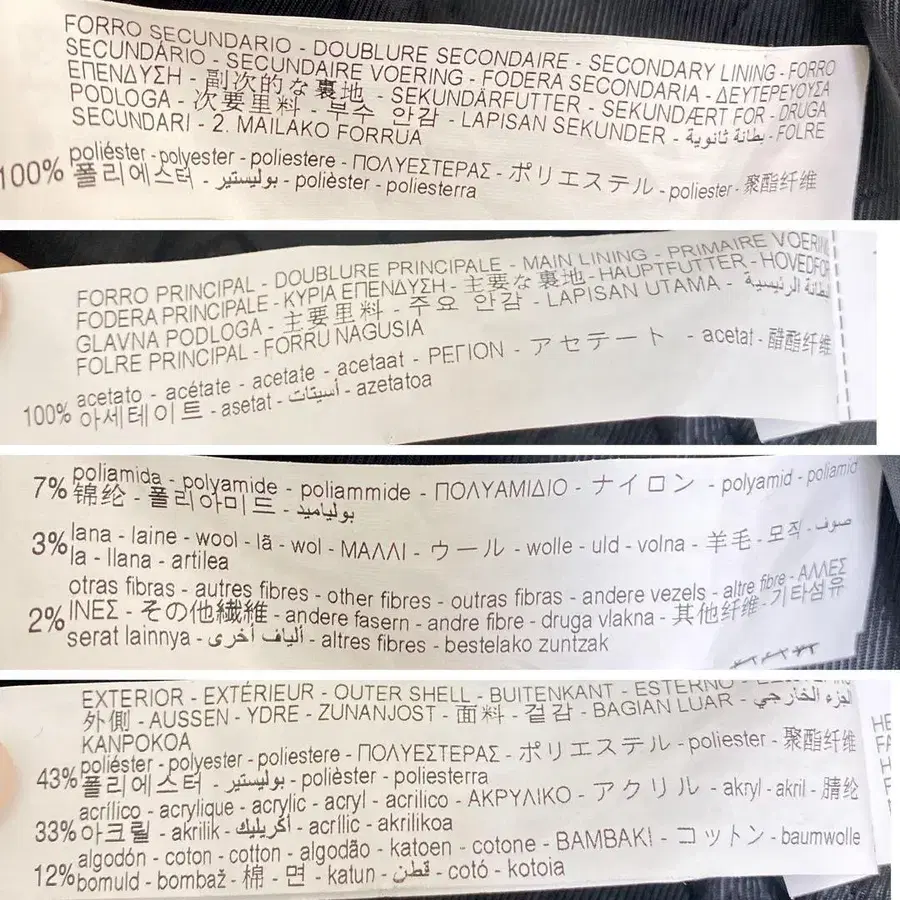 FORRO SECUNDARIO - DOUBLURE SECONDAIRE - SECONDARY LINING - FORRO
SECUNDÁRIO - SECUNDAIRE VOERING - FODERA SECONDARIA - ΔΕΥΤΕΡΕΥΟΥΣΑ
ΕΠΕΝΔΥΣΗ - 副次的な裏地 - SEKUNDÄRFUTTER - SEKUNDÆRT FOR - DRUGA
PODLOGA - 次要里料 - 부수 안감 - LAPISAN SEKUNDER - بطانة ثانوية - FOLRE
SECUNDARI - 2. MAILAKO FORRUA
100% poliéster - polyester - poliestere - ΠΟΛΥΕΣΤΕΡΑΣ - ポリエステル - poliester - 聚酯纤维
폴리에스터 - بوليستير - polièster - poliesterra
FORRO PRINCIPAL - DOUBLURE PRINCIPALE - MAIN LINING - PRIMAIRE VOERING
FODERA PRINCIPALE - ΚΥΡΙΑ ΕΠΕΝΔΥΣΗ - 主要な裏地 - HAUPTFUTTER - HOVEDFOR
GLAVNA PODLOGA - 主要里料 - 주요 안감 - LAPISAN UTAMA - البطانة الرئيسية
FOLRE PRINCIPAL - FORRU NAGUSIA
100% acetato - acétate - acetate - acetaat - ΡΕΓΙΟΝ - アセテート - acetat - 醋酯纤维
아세테이트 - asetat - أسيتات - azetatoa
7% poliamida - polyamide - poliammide - ΠΟΛΥΑΜΙΔΙΟ - ナイロン - polyamid - poliamid
锦纶 - 폴리아미드 - بولياميد
3% lana - laine - wool - lã - wol - ΜΑΛΛΙ - ウール - wolle - uld - volna - 羊毛 - 모직 - صوف -
la - llana - artilea
otras fibras - autres fibres - other fibres - outras fibras - andere vezels - altre fibre - ΑΛΛΕΣ
2% ΙΝΕΣ - その他繊維 - andere fasern - andre fibre - druga vlakna - 其他纤维 - 기타섬유
serat lainnya - ألياف أخرى - altres fibres - bestelako zuntzak
EXTERIOR - EXTÉRIEUR - OUTER SHELL - BUITENKANT - ESTERNO -
外側 - AUSSEN - YDRE - ZUNANJOST - 面料 - 겉감 - BAGIAN LUAR - الجزء الخارجي
KANPOKOA
43% poliéster - polyester - poliestere - ΠΟΛΥΕΣΤΕΡΑΣ - ポリエステル - poliester - 聚酯纤维
폴리에스터 - بوليستير - polièster - poliesterra
acrílico - acrylique - acrylic - acryl - acrilico - ΑΚΡΥΛΙΚΟ - アクリル - akryl - akril - 腈纶
33% 아크릴 - akrilik - أكريليك - acrílic - akrilikoa
12% algodón - coton - cotton - algodão - katoen - cotone - ΒΑΜΒΑΚΙ - コットン - baumwolle
bomuld - bombaž - 棉 - 면 - katun - قطن - cotó - kotoia